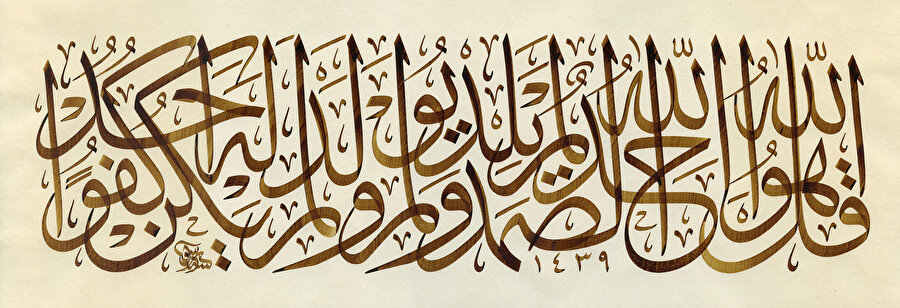 قُلْ هُوَ اللّٰهُ أَحَدٌ اللّٰهُ الصَّمَدُ لَمْ يَلِدْ وَلَمْ يُولَدْ وَلَمْ يَكُنْ لَهُ كُفُوًا أَحَدٌ
١٤٣٩